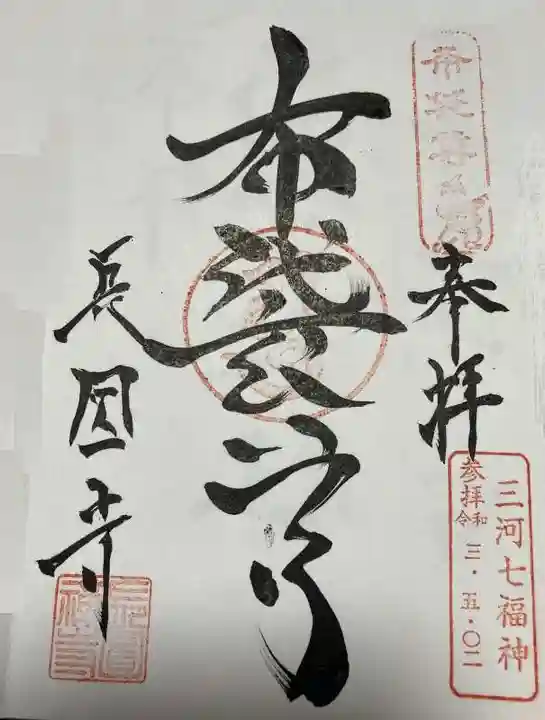 奉拝
三河七福神
参拝
令和 三・五・〇二
布袋尊
長圓寺